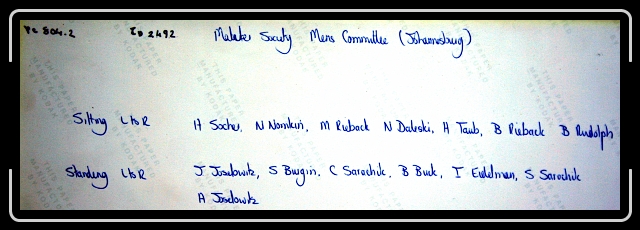 Pc 804.2 ID 2492 Malater Society Mens Committee (Johannesburg)
Sitting L to R H Sochu, N Nomkin, M Pieback N Daleski, H Taub, B Pieback B Rudolph
Standing L to R J Joselowitz, S Burgin, C Sarachik, B Buck, I Eidelman, S Sarachik
A Joselowitz